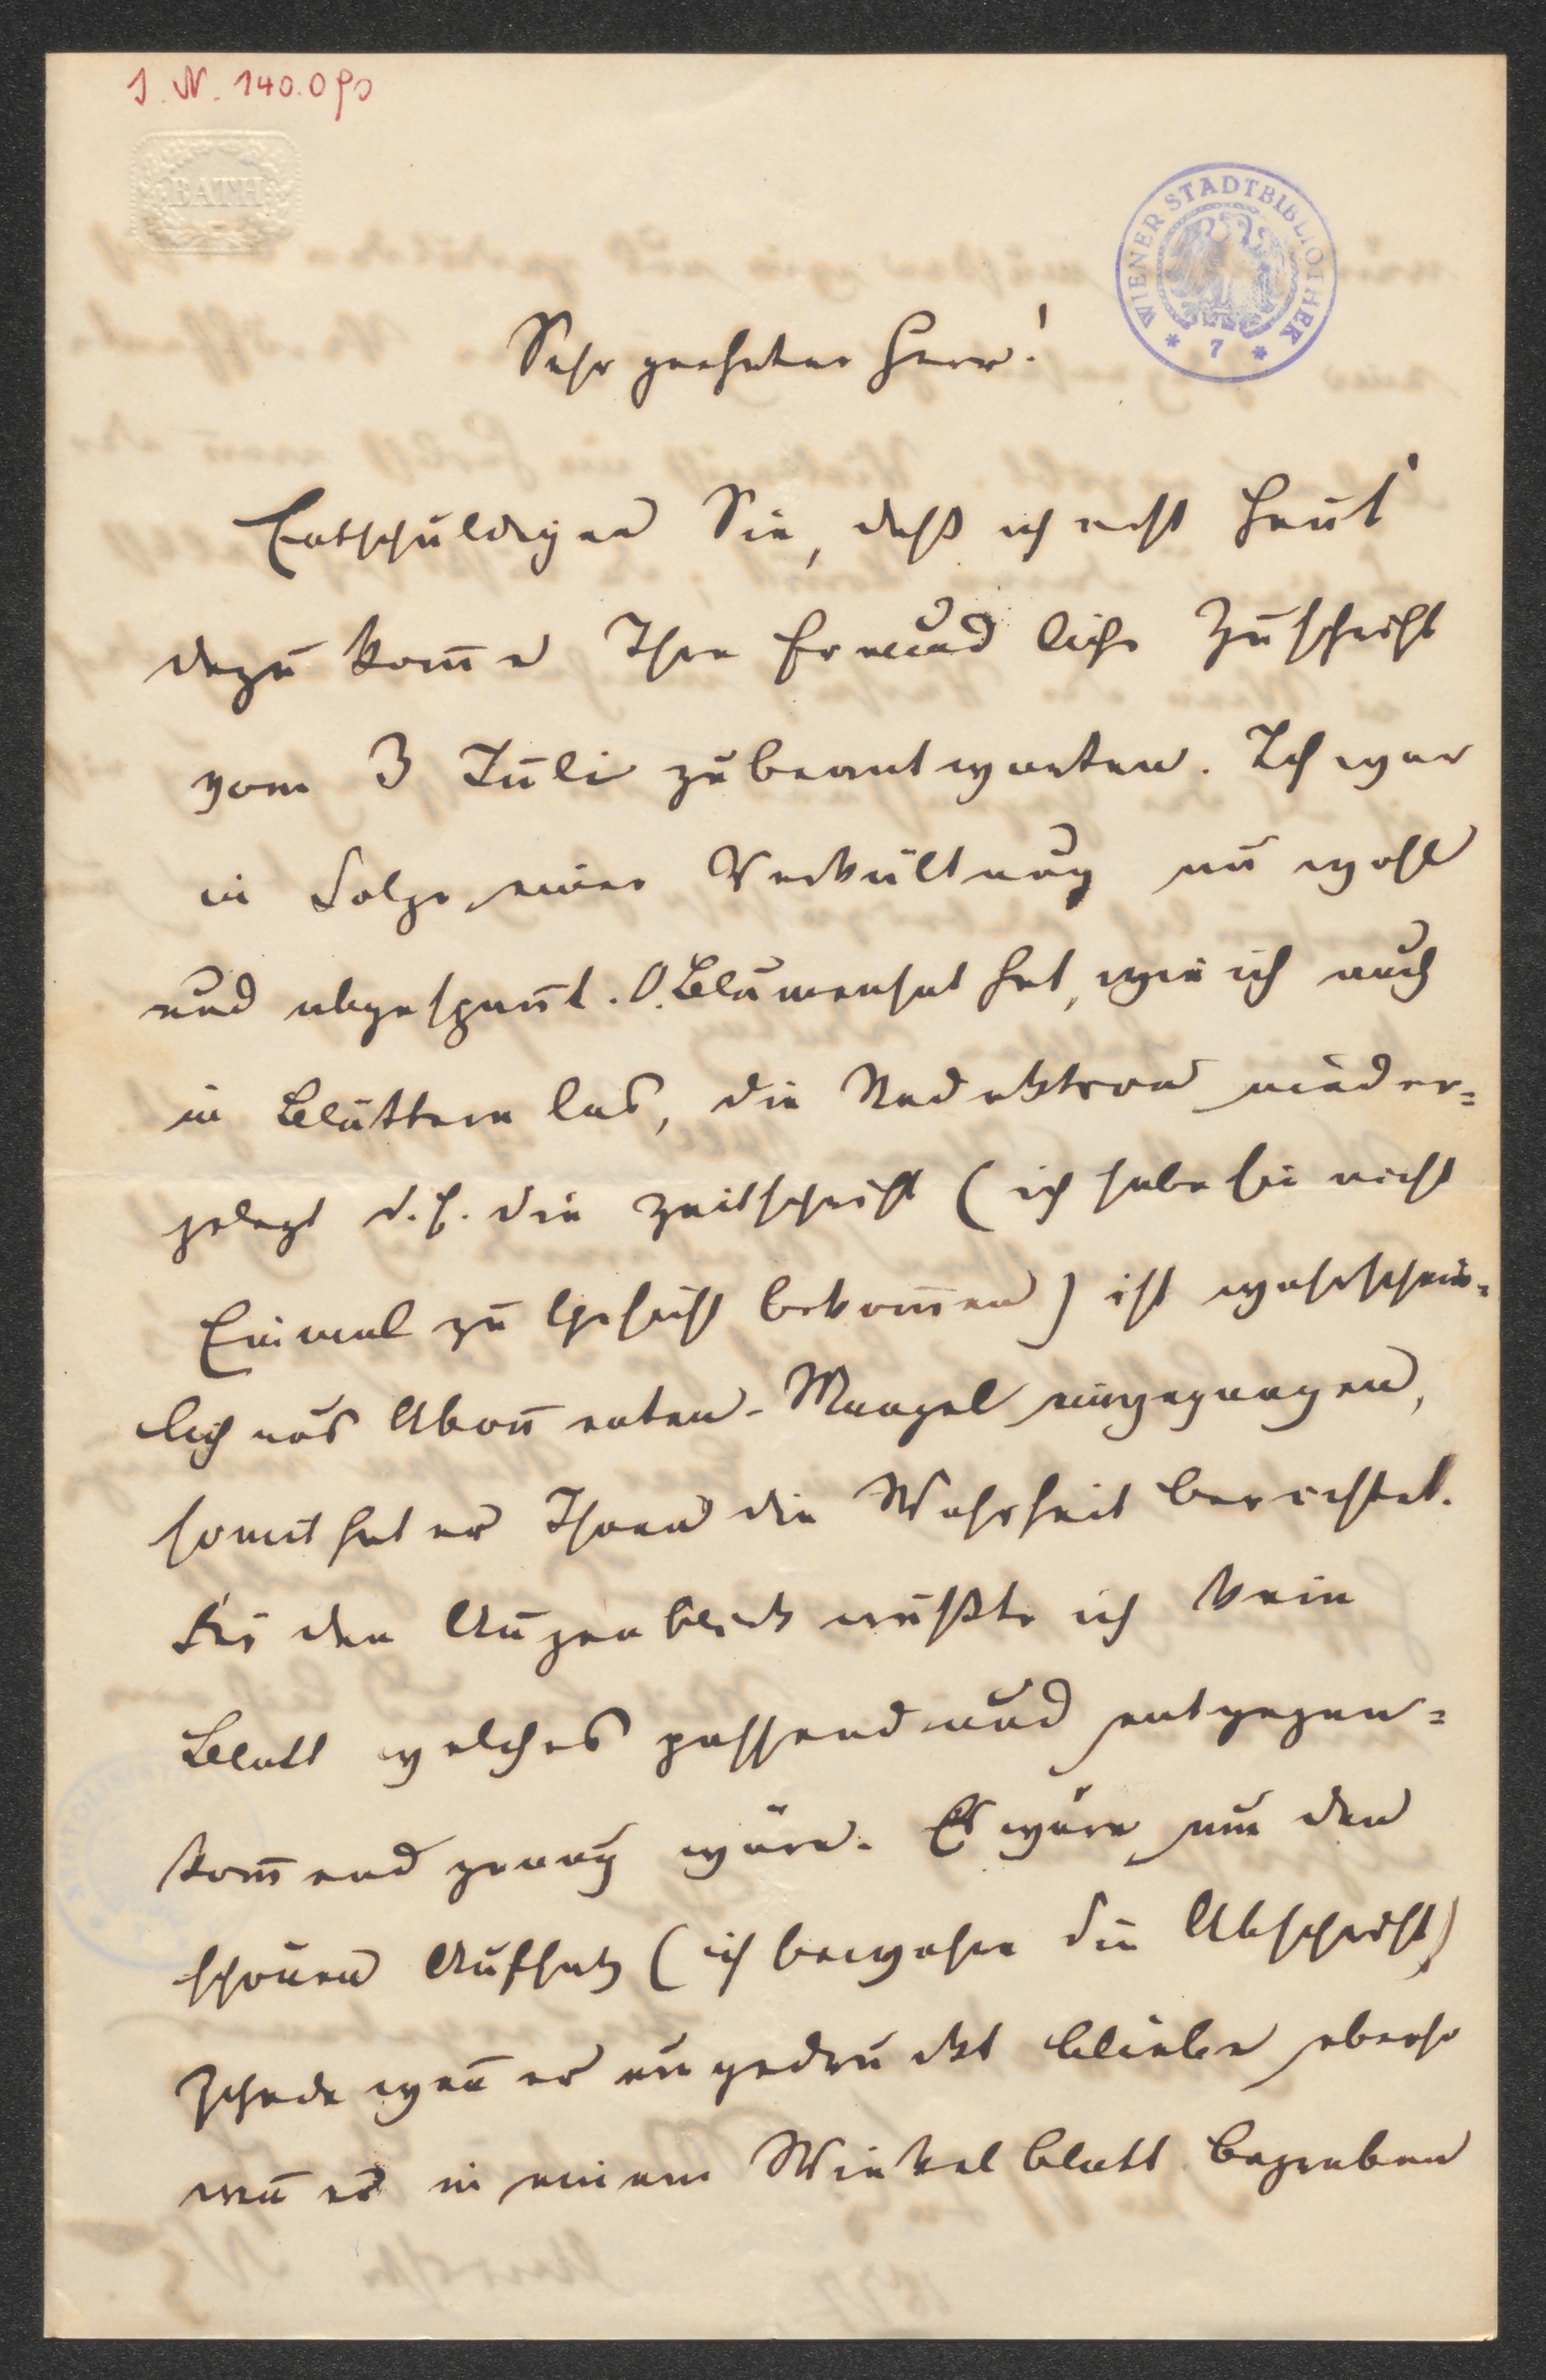 I. N. 140.090
BATH
WIENER STADTBIBLIOTHEK
* 7 *
Sehr geehrter Herr!
Entschuldigen Sie, daß ich erst heut'
dazu kom̄e Ihre freundliche Zuschrift
vom 3 Juli zu beantworten. Ich war
in Folge einer Verkältung unwohl
und abgespan̄t. O. Blumenthal hat, wie ich auch
in Blättern las, die Redaktion nieder=
gelegt d. h. die Zeitschrift (ich habe sie nicht
Einmal zu Gesicht bekom̄en) ist wahrschein=
lich aus Abon̄enten-Mangel eingegangen,
somit hat er Ihnen die Wahrheit berichtet.
Für den Augenblick wüßte ich kein
Blatt welches passend und entgegen=
kom̄end genug wäre. Es wäre um den
schönen Aufsatz (ich bewahre die Abschrift)
schade wen̄ er ungedruckt bliebe ebenso
wen̄ er in einem Winkelblatt begraben